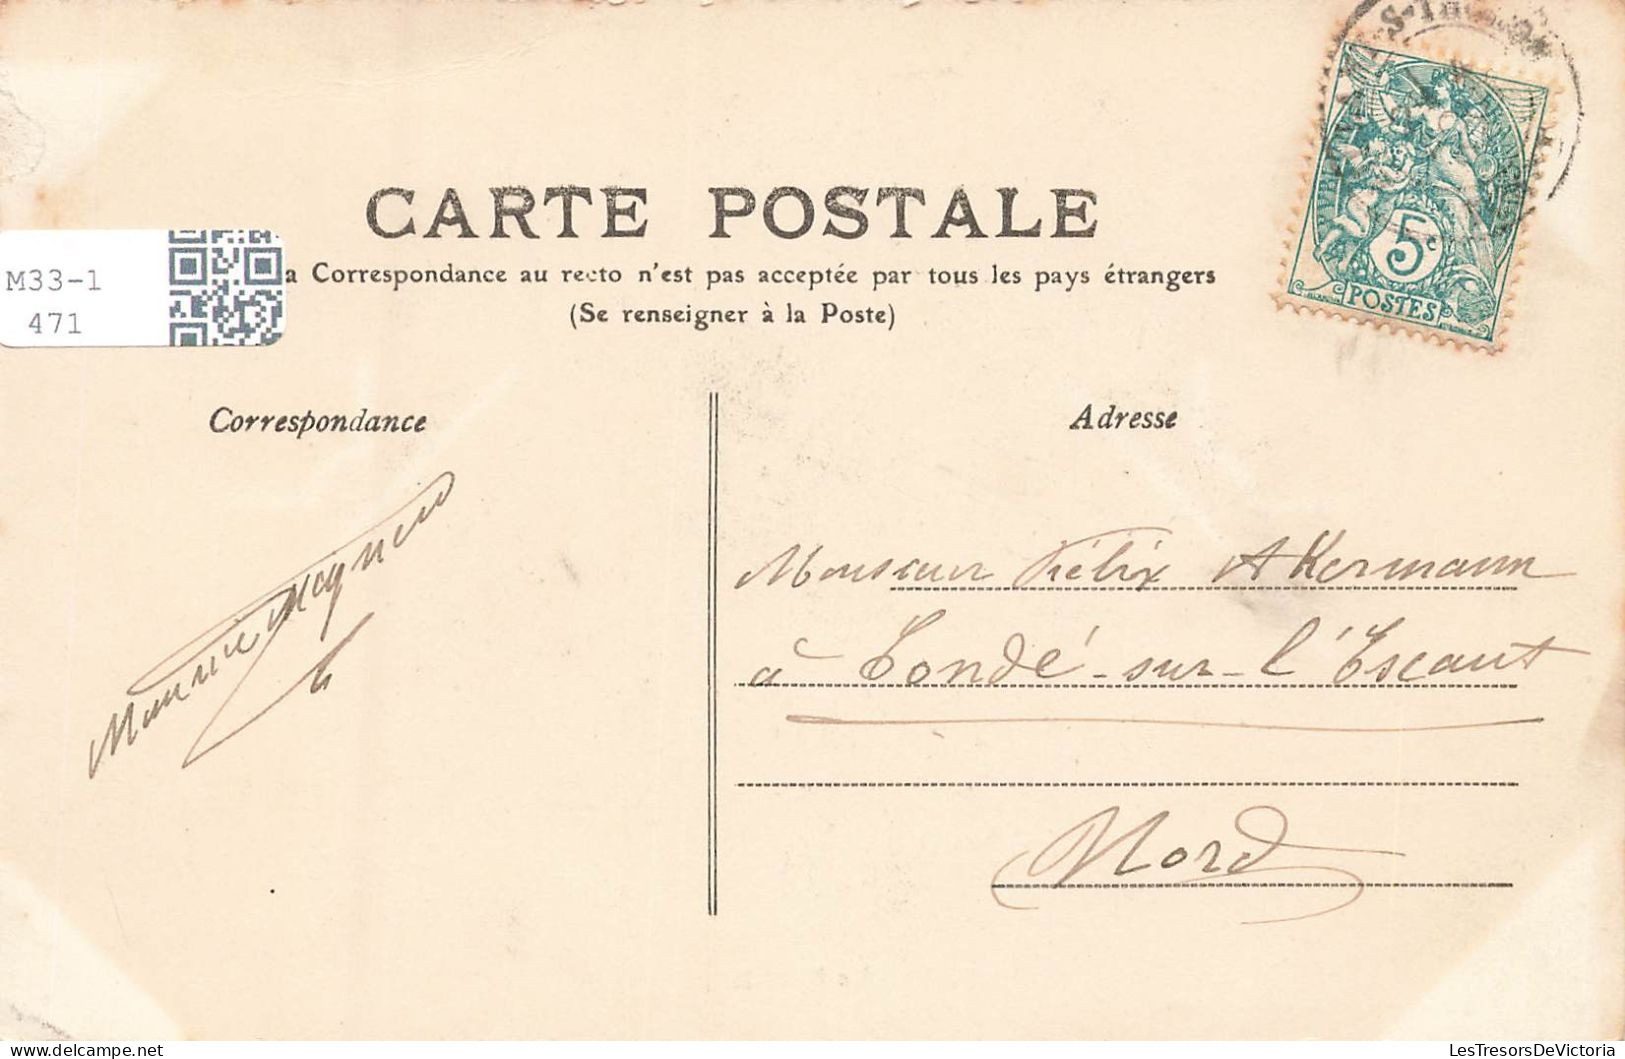 CARTE POSTALE
a Correspondance au recto n'est pas acceptée par tous les pays étrangers
(Se renseigner à la Poste)
M33-1
471
5c
POSTES
Correspondance
Maurice
Adresse
Monsieur Félix Akermann
à Condé-sur-l'Escaut
Nord
delcampe.net
LesTresorsDeVictoria